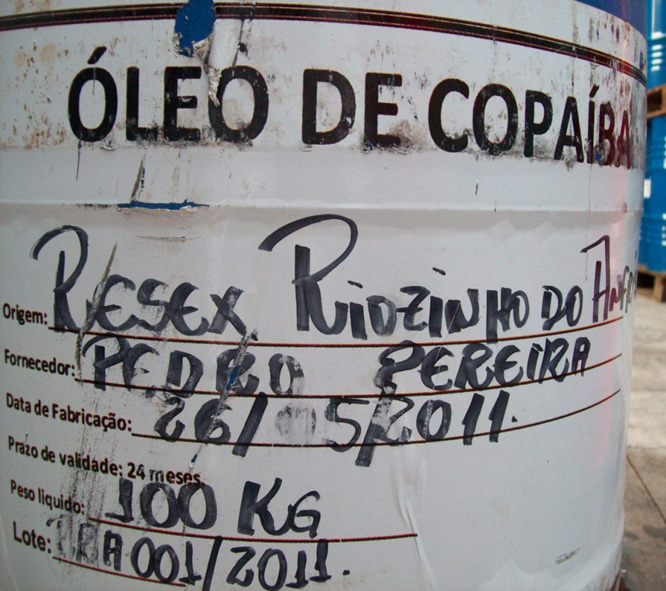 ÓLEO DE COPAÍBA
Origem: RESEX RIOZINHO DO
Fornecedor: PEDRO PEREIRA
Data de Fabricação: 26/ 5/2011.
Prazo de validade: 24 meses.
Peso liquido: 100 KG
Lote: A001/2011.